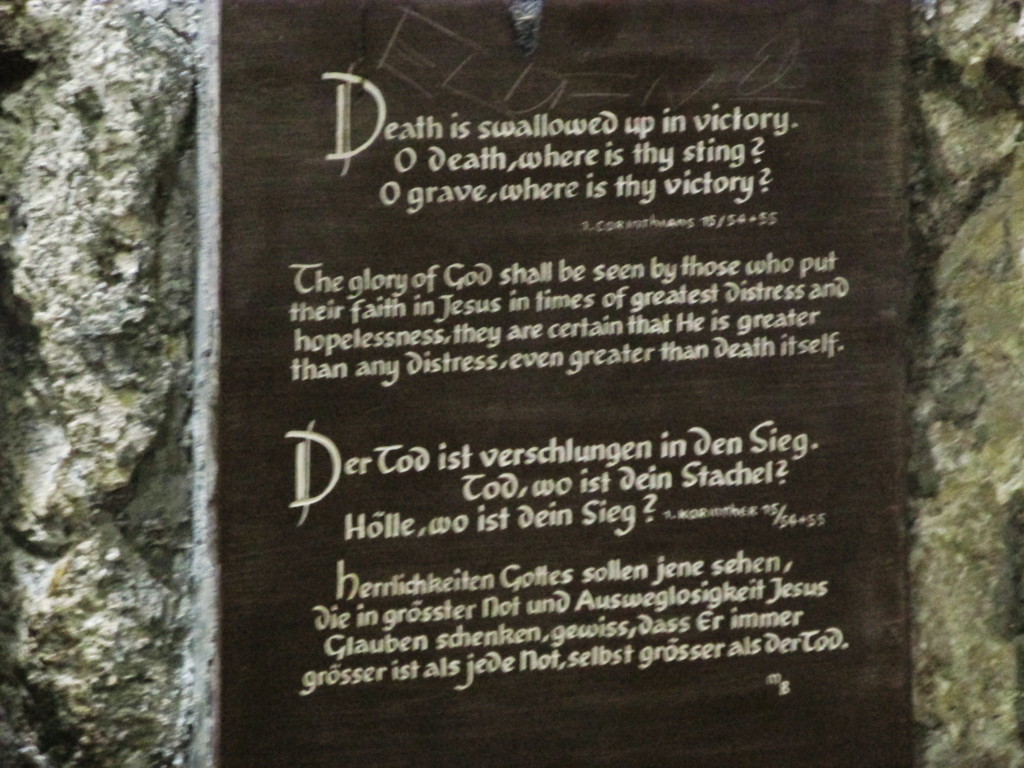 Death is swallowed up in victory.
O death, where is thy sting?
O grave, where is thy victory?
1. CORINTHIANS 15/54+55
The glory of God shall be seen by those who put
their faith in Jesus in times of greatest distress and
hopelessness, they are certain that He is greater
than any distress, even greater than death itself.
Der Tod ist verschlungen in den Sieg.
Tod, wo ist dein Stachel?
Hölle, wo ist dein Sieg? 1. KORINTHER 15/54+55
Herrlichkeiten Gottes sollen jene sehen,
die in grösster Not und Ausweglosigkeit Jesus
Glauben schenken, gewiss, dass Er immer
grösser ist als jede Not, selbst grösser als der Tod.
MB